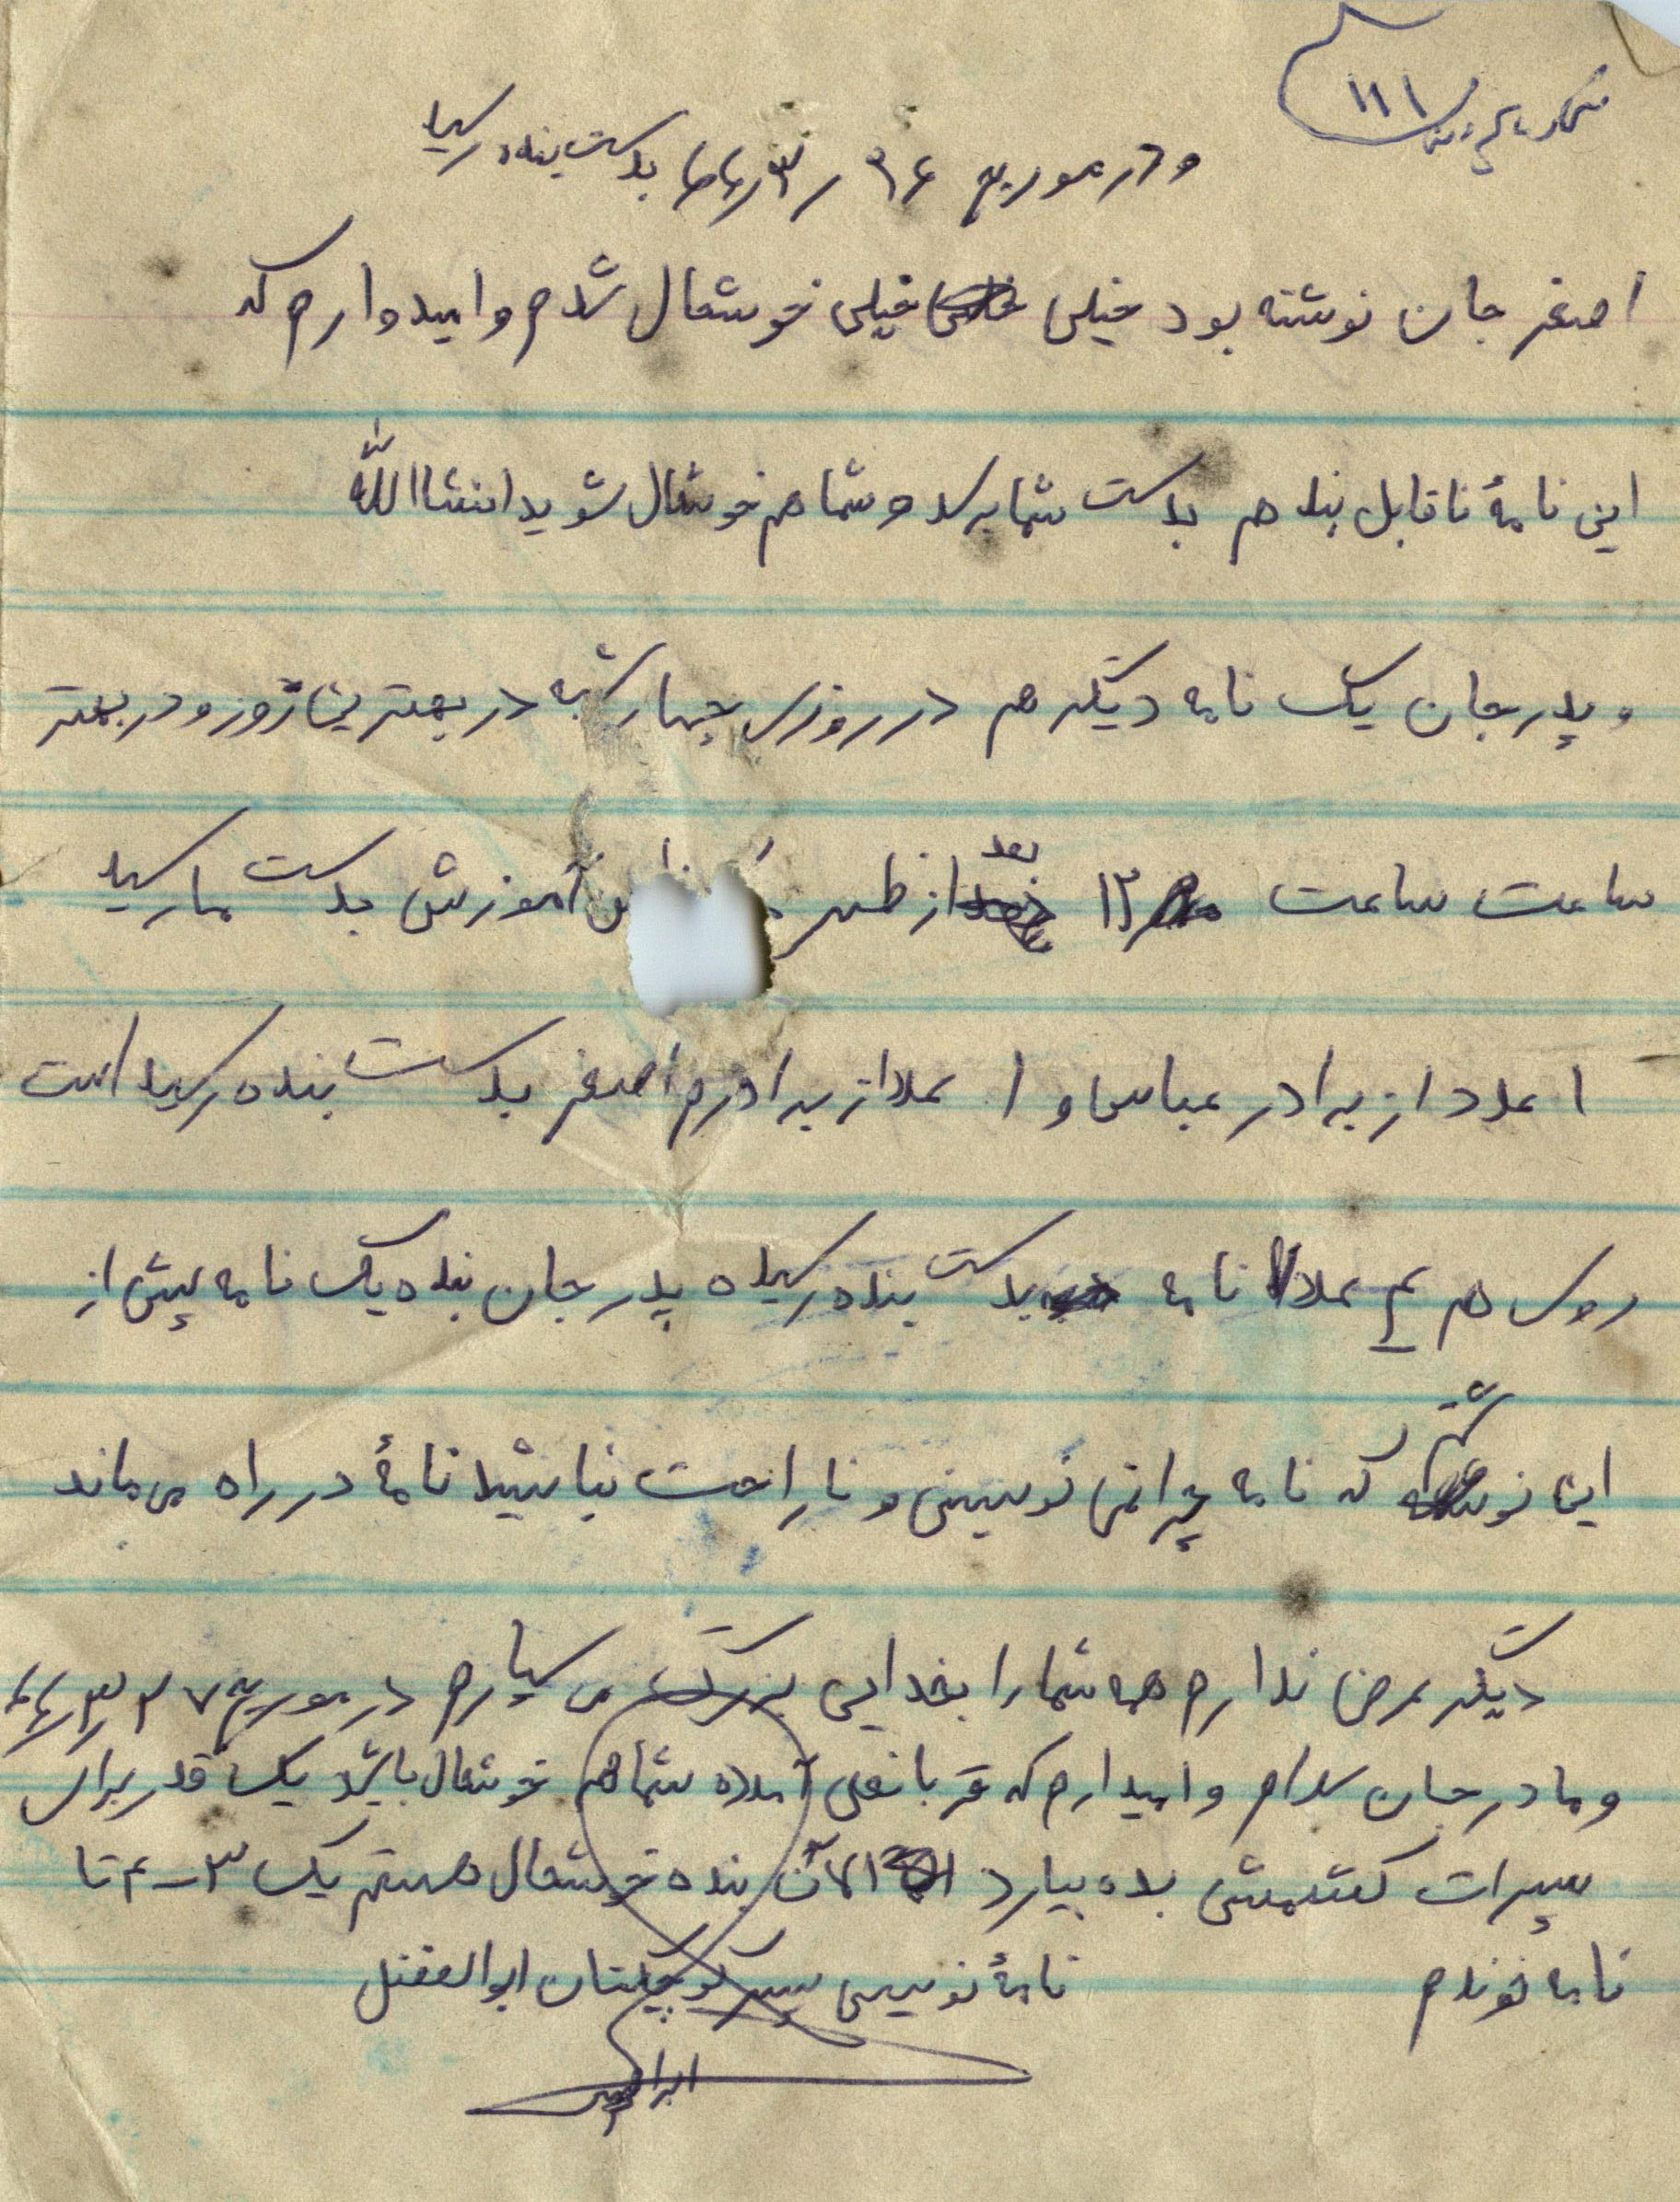 ۱۱۱
و در مورخ ۲۶ / ۳ / ۶۶ بدست بنده رسید
اصغر جان نوشته بود خیلی خیلی خوشحال شدم و امیدوارم که
این نامهٔ ناقابل بنده هم بدست شما برسد و شما هم خوشحال شوید انشاالله
و پدر جان یک نامه دیگر هم در روزی چهارشنبه در بهترین روز و در بهتر
ساعت ساعت ۱۲ بعد از ظهر آموزش بدست ما رسید
۱ عدد از برادر عباس و ۱ عدد از برادرم اصغر بدست بنده رسید است
روی هم ۴ عدد نامه بدست بنده رسیده پدر جان بنده یک نامه پیش از
این نوشتم که نامه چرا نمی نویسینی و ناراحت نباشید نامهٔ در راه می ماند
دیگر عرض ندارم همه شما را بخدایی بزرگ می سپارم در مورخ ۲۷ / ۳ / ۶۶
و مادر جان سلام و امیدارم که قربانعلی آمده شما هم خوشحال باشید یک قدر برای
پسرات کشمشی بده بیارد الآن بنده خوشحال هستم یک ۳ - ۴ تا
نامه خوندم نامهٔ نویسی پسر کوچکتان ابوالفضل
ابراهیمی